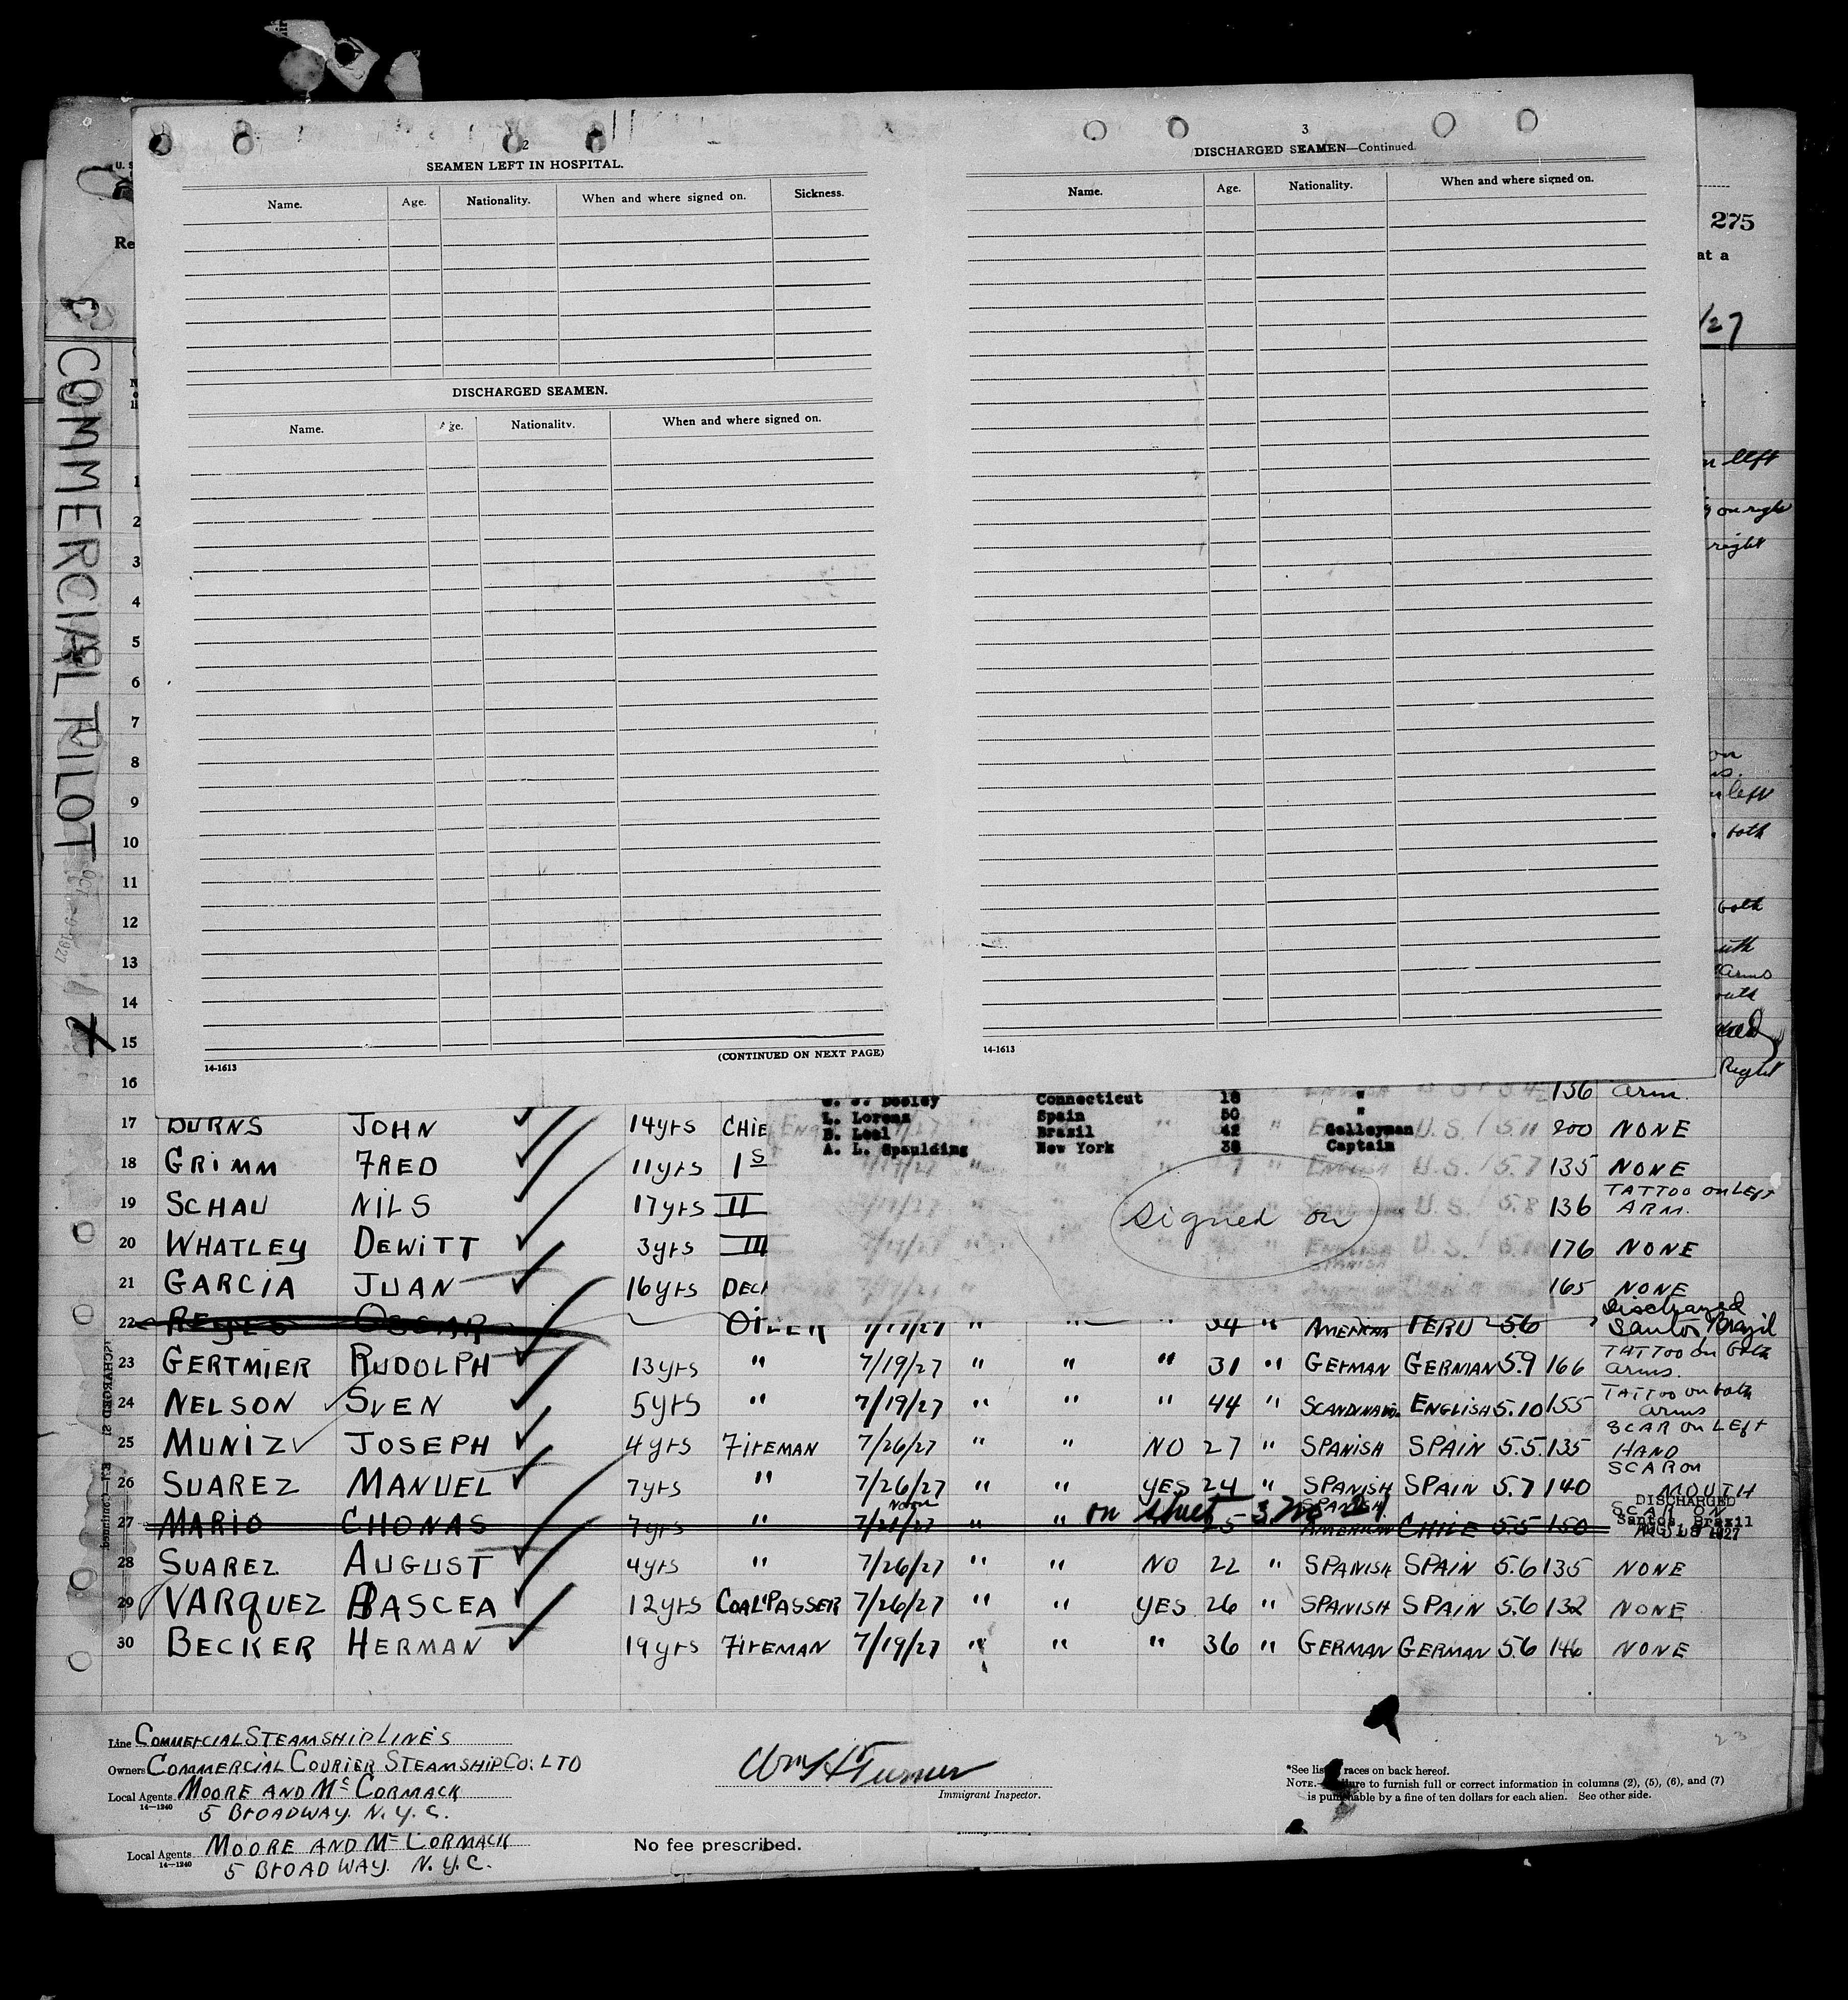 2
SEAMEN LEFT IN HOSPITAL.
Name. Age. Nationality. When and where signed on. Sickness.
DISCHARGED SEAMEN.
Name. Age. Nationality. When and where signed on.
14-1613 (CONTINUED ON NEXT PAGE)
3
DISCHARGED SEAMEN—Continued.
Name. Age. Nationality. When and where signed on.
14-1613
275
at a
/27
Re
COMMERCIAL PILOT
OCT 1927
1
2
3
4
5
6
7
8
9
10
11
12
13
14
15
16
left
on right
right
on
left
both
both
Arms
Right
Connecticut 18 "
L. Lorenz Spain 50 "
B. Leal Brazil 42 Galleyman
A. L. Spaulding New York 38 Captain
signed on
156 arm.
17 BURNS JOHN 14yrs CHIE U.S. 5.11 200 NONE
18 GRIMM FRED 11yrs 1S ENGLISH U.S. 5.7 135 NONE
19 SCHAU NILS 17yrs II U.S. 5.8 136 TATTOO on LEFT ARM.
20 WHATLEY DEWITT 3yrs III ENGLISH U.S. 176 NONE
21 GARCIA JUAN 16yrs DECK 165 NONE
22 REYES OSCAR OILER 7/19/27 " " 34 " AMERICAN PERU 56 Discharged Santos Brazil
23 GERTMIER RUDOLPH 13yrs " 7/19/27 " " " 31 " GERMAN GERMAN 5.9 166 TATTOO on both arms.
24 NELSON SVEN 5yrs " 7/19/27 " " " 44 " SCANDINAVN. ENGLISH 5.10 155 TATTOO on both arms
25 MUNIZ JOSEPH 4yrs FIREMAN 7/26/27 " " NO 27 " SPANISH SPAIN 5.5. 135 SCAR ON LEFT HAND
26 SUAREZ MANUEL 7yrs " 7/26/27 " " YES 24 " SPANISH SPAIN 5.7 140 SCAR on MOUTH
on sheet 3 No 21
27 MARIO CHONAS 7yrs " 7/21/27 " 25 " SPANISH AMERICAN CHILE 5.5 150 SCAR ON
DISCHARGED Santos Brazil AUG 18 1927
28 SUAREZ AUGUST 4yrs " 7/26/27 " " NO 22 " SPANISH SPAIN 5.6 135 NONE
29 VARQUEZ BASCEA 12yrs COAL PASSER 7/26/27 " " YES 26 " SPANISH SPAIN 5.6 132 NONE
30 BECKER HERMAN 19yrs FIREMAN 7/19/27 " " " 36 " GERMAN GERMAN 5.6 146 NONE
Line COMMERCIAL STEAMSHIP LINES
Owners COMMERCIAL COURIER STEAMSHIP CO. LTD
Local Agents MOORE AND McCORMACK
14-1240
5 BROADWAY. N.Y.C.
Wm H Turner
Immigrant Inspector.
*See list races on back hereof.
NOTE.— Failure to furnish full or correct information in columns (2), (5), (6), and (7)
is punishable by a fine of ten dollars for each alien. See other side.
Local Agents MOORE AND McCORMACK
14-1240
5 BROADWAY. N.Y.C.
No fee prescribed.